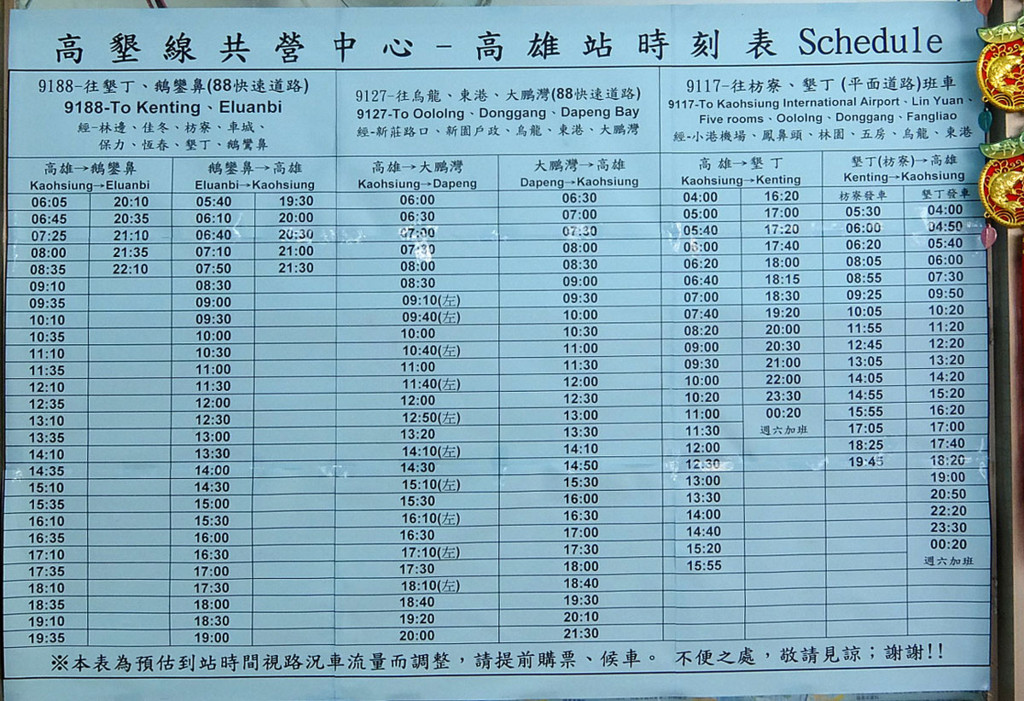 高墾線共營中心-高雄站時刻表 Schedule
9188-往墾丁、鵝鑾鼻(88快速道路)
9188-To Kenting、Eluanbi
經-林邊、佳冬、枋寮、車城、
保力、恆春、墾丁、鵝鸞鼻
9127-往烏龍、東港、大鵬灣(88快速道路)
9127-To Oololng、Donggang、Dapeng Bay
經-新莊路口、新園戶政、烏龍、東港、大鵬灣
9117-往枋寮、墾丁(平面道路)班車
9117-To Kaohsiung International Airport、Lin Yuan、
Five rooms、Oololng、Donggang、Fangliao
經-小港機場、鳳鼻頭、林園、五房、烏龍、東港
高雄→鵝鑾鼻 鵝鑾鼻→高雄 高雄→大鵬灣 大鵬灣→高雄 高雄→墾丁 墾丁(枋寮)→高雄
Kaohsiung→Eluanbi Eluanbi→Kaohsiung Kaohsiung→Dapeng Dapeng→Kaohsiung Kaohsiung→Kenting Kenting→Kaohsiung
06:05 20:10 05:40 19:30 06:00 06:30 04:00 16:20 枋寮發車 墾丁發車
06:45 20:35 06:10 20:00 06:30 07:00 05:00 17:00 05:30 04:00
07:25 21:10 06:40 20:30 07:00 07:30 05:40 17:20 06:00 04:50
08:00 21:35 07:10 21:00 07:30 08:00 06:00 17:40 06:20 05:40
08:35 22:10 07:50 21:30 08:00 08:30 06:20 18:00 08:05 06:00
09:10 08:30 08:30 09:00 06:40 18:15 08:55 07:30
09:35 09:00 09:10(左) 09:30 07:00 18:30 09:25 09:50
10:10 09:30 09:40(左) 10:00 07:40 19:20 10:05 10:20
10:35 10:00 10:00 10:30 08:20 20:00 11:55 11:20
11:10 10:30 10:40(左) 11:00 09:00 20:30 12:45 12:20
11:35 11:00 11:00 11:30 09:30 21:00 13:05 13:20
12:10 11:30 11:40(左) 12:00 10:00 22:00 14:05 14:20
12:35 12:00 12:00 12:30 10:20 23:30 14:55 15:20
13:10 12:30 12:50(左) 13:00 11:00 00:20 15:55 16:20
13:35 13:00 13:20 13:30 11:30 週六加班 17:05 17:00
14:10 13:30 14:10(左) 14:10 12:00 18:25 17:40
14:35 14:00 14:30 14:50 12:30 19:45 18:20
15:10 14:30 15:10(左) 15:30 13:00 19:00
15:35 15:00 15:30 16:00 13:30 20:50
16:10 15:30 16:10(左) 16:30 14:00 22:20
16:35 16:00 16:30 17:00 14:40 23:30
17:10 16:30 17:10(左) 17:30 15:20 00:20
17:35 17:00 17:30 18:00 15:55 週六加班
18:10 17:30 18:10(左) 18:40
18:35 18:00 18:40 19:30
19:10 18:30 19:20 20:10
19:35 19:00 20:00 21:30
※本表為預估到站時間視路況車流量而調整，請提前購票、候車。 不便之處，敬請見諒；謝謝!!